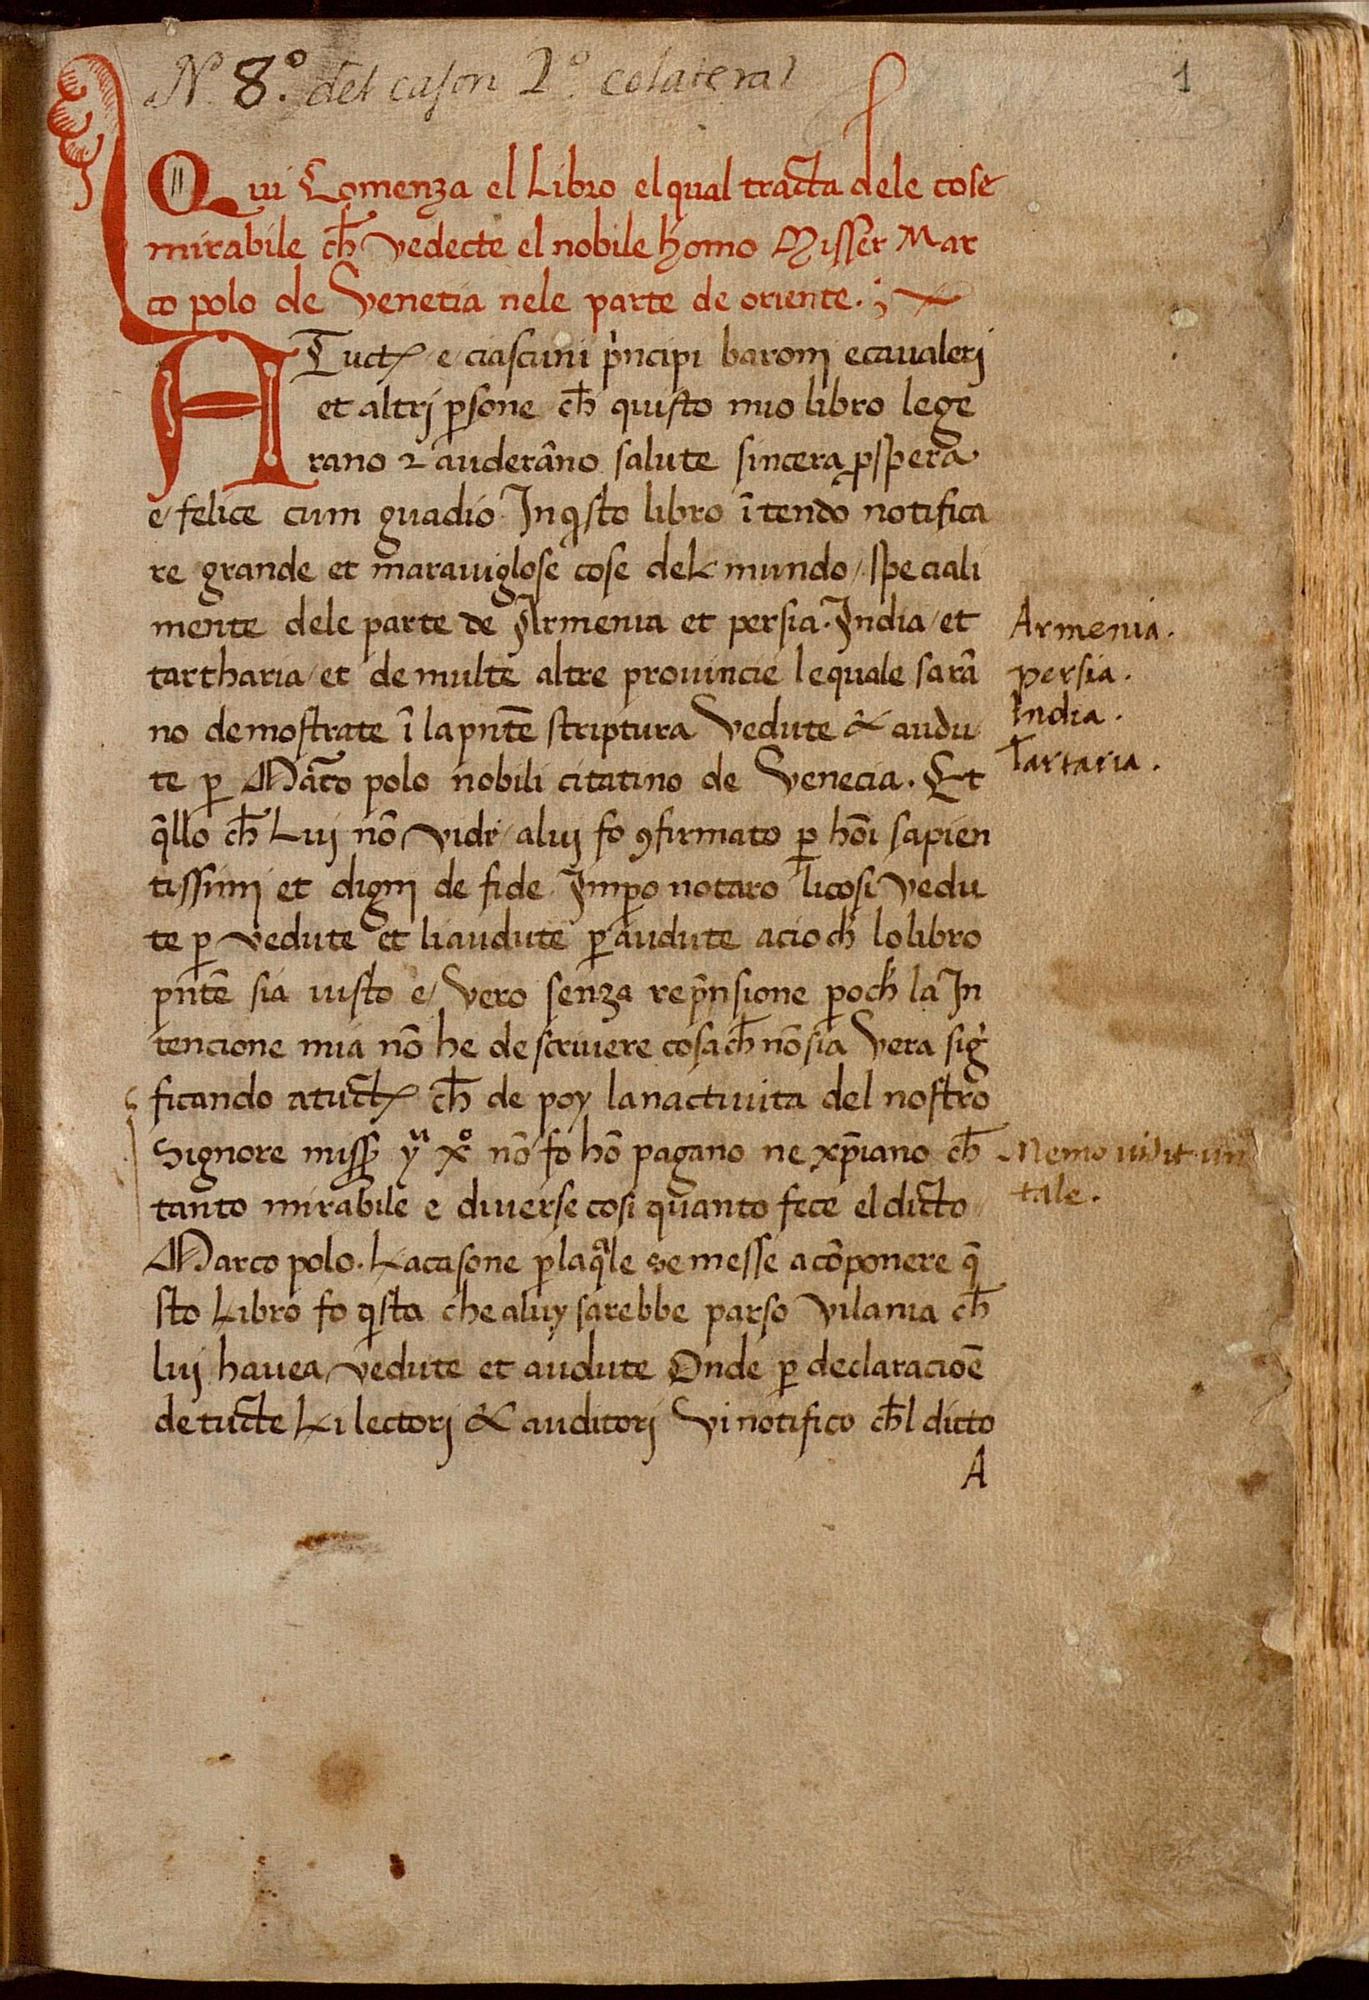 N.º 8.º del cason 2.º colateral
1
Qui Comenza el Libro el qual tracta dele cose
mirabile ch̄ vedecte el nobile homo Misser Mar
co polo de Venetia nele parte de oriente . ;
A Tuctꝭ e ciascuni p̄ncipi baroni e cavalerj
et altrj ꝑsone ch̄ quisto mio libro lege
rano ⁊ auderãno salute sincera ꝓspera
e / felice cum guadio In q̃sto libro ĩtendo notifica
re grande et maraviglose cose del mundo / speciali
mente dele parte de Armenia et persia . India / et
tartharia / et de multe altre provincie lequale sarã
no demostrate ĩ la pñte scriptura Vedute & audu
te ꝑ Marco polo nobili citatino de Venecia . Et
q̃llo ch̄ Lui nõ vide / a luj fo ꝯfirmato ꝑ hoĩ sapien
tissimi et digni de fide Imꝑo notaro li cosi vedu
te ꝑ vedute et li audute ꝑ audute acio ch̄ lo libro
pñte sia iusto e / vero senza rep̃nsione ꝑo ch̄ la In
tencione mia nõ he de scrivere cosa ch̄ nõ sia Vera sig̃
ficando a tuctꝭ ch̄ de poy la nactivita del nostro
Signore miss̃ yᵘ xº nõ fo hõ pagano ne xp̃iano ch̄
tanto mirabile e diverse cosi quanto fece el dicto
Marco polo . La casone ꝑ la q̃le se messe a cõponere q̃
sto Libro fo q̃sta che a luy sarebbe parso vilania ch̄
luj havea vedute et audute Onde ꝑ declaracioẽ
de tucte Li lectorj & auditorj Vi notifico ch̄l dicto
A
Armenia .
persia .
India .
Tartaria .
Nemo vidit
tale .